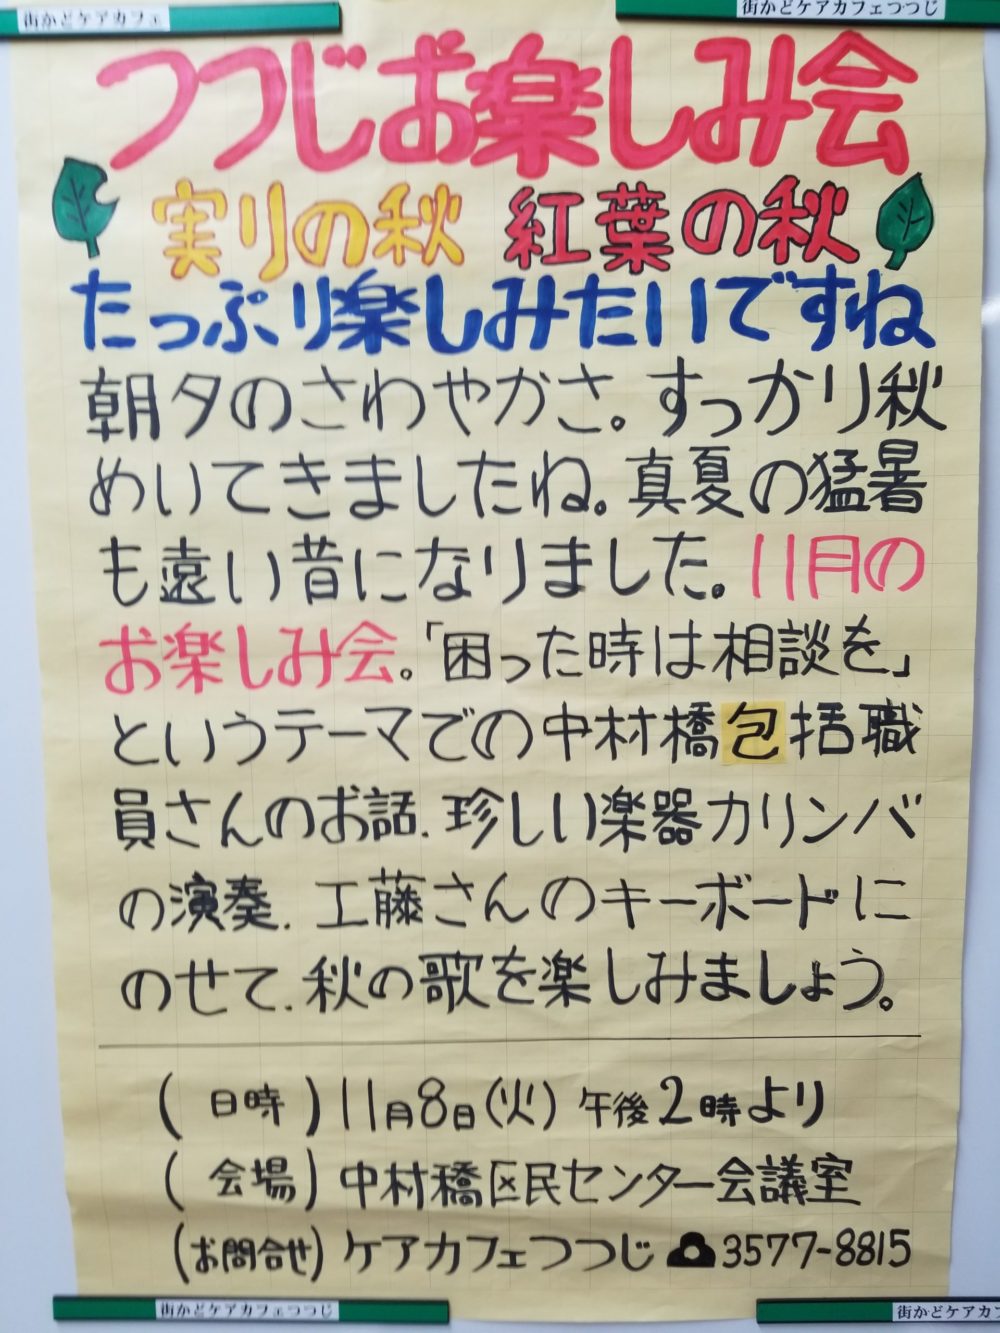 街かどケアカフェ
街かどケアカフェつつじ
つつじお楽しみ会
実りの秋 紅葉の秋
たっぷり楽しみたいですね
朝夕のさわやかさ。すっかり秋
めいてきましたね。真夏の猛暑
も遠い昔になりました。11月の
お楽しみ会。「困った時は相談を」
というテーマでの中村橋包括職
員さんのお話、珍しい楽器カリンバ
の演奏、工藤さんのキーボードに
のせて、秋の歌を楽しみましょう。
(日時) 11月8日(火) 午後2時より
(会場) 中村橋区民センター会議室
(お問合せ) ケアカフェつつじ ☎3577-8815
街かどケアカフェつつじ
街かどケアカフェつ